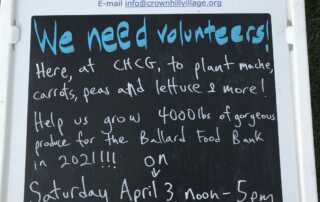 E-mail info@crownhillvillage.org
We need volunteers!
Here, at CHCG, to plant mache,
carrots, peas and lettuce & more!
Help us grow 4000 lbs of gorgeous
produce for the Ballard Food Bank
in 2021!!! on
Saturday April 3 noon-5pm